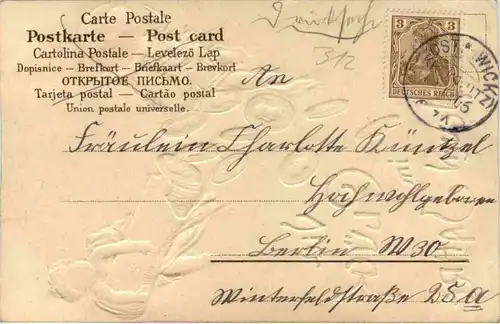 Carte Postale
Postkarte — Post card
Cartolina Postale — Levelező Lap
Dopisnice — Brefkort — Briefkaart — Brevkort
ОТКРЫТОЕ ПИСЬМО.
Tarjeta postal — Cartão postal
Union postale universelle.
Drucksache
312
3 3
DEUTSCHES REICH
An
Fräulein Charlotte Küntzel
Hochwohlgeboren
Berlin W 30
Winterfeldstraße 25 a